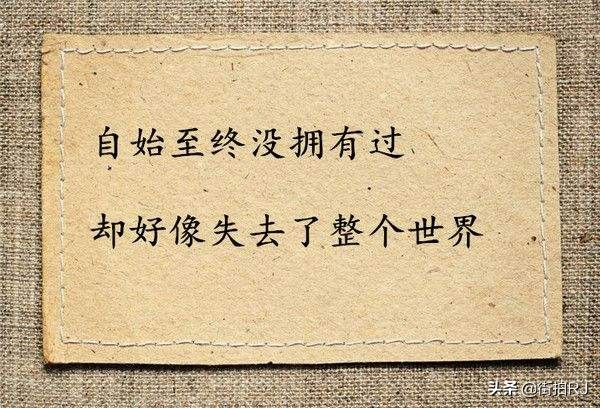 自始至终没拥有过
却好像失去了整个世界
头条 @街拍RJ